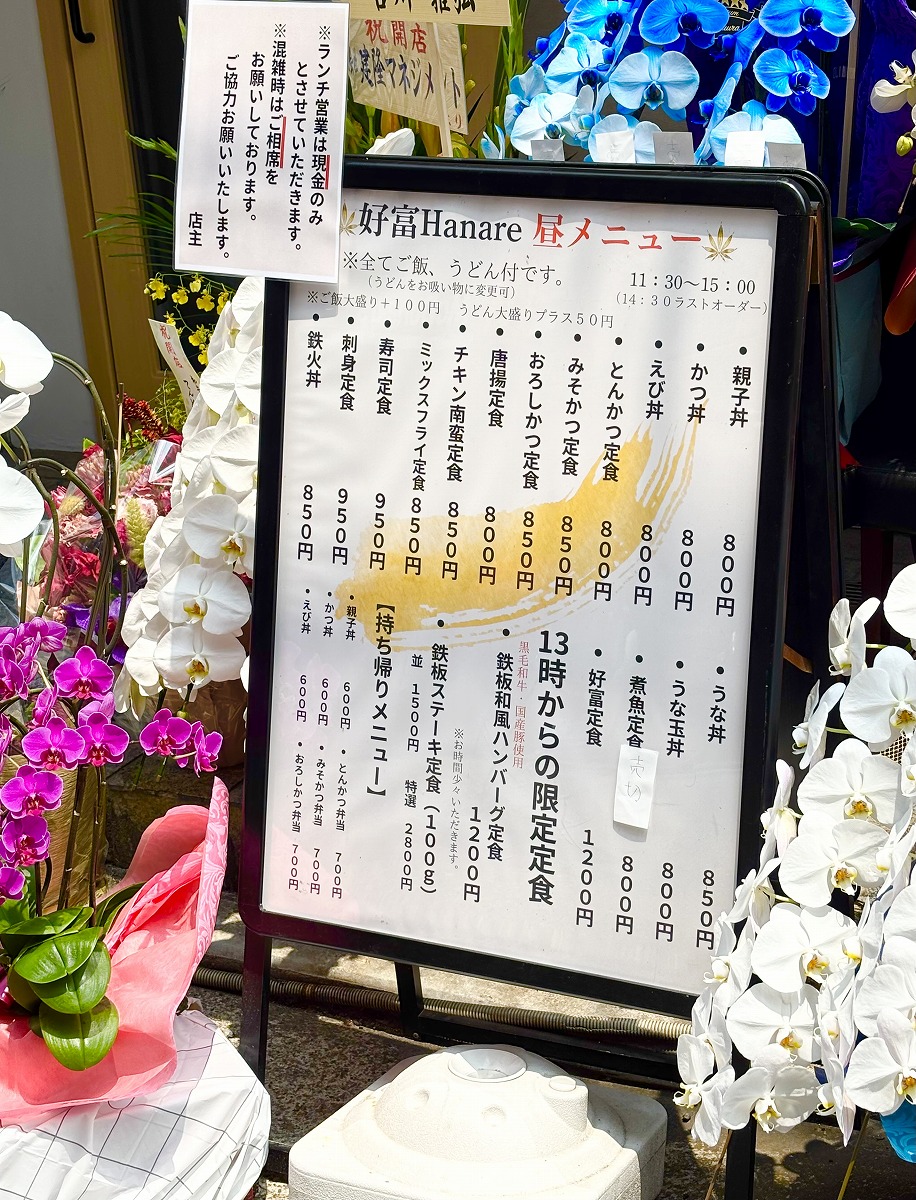 祝開店
建隆マネジメント
※ランチ営業は現金のみ
とさせていただきます。
※混雑時はご相席を
お願いしております。
ご協力お願いいたします。
店主
好富Hanare 昼メニュー
※全てご飯、うどん付です。
(うどんをお吸い物に変更可)
11：30〜15：00
(14：30ラストオーダー)
※ご飯大盛り＋100円　うどん大盛りプラス50円
・親子丼 800円
・かつ丼 800円
・えび丼 800円
・とんかつ定食 800円
・みそかつ定食 850円
・おろしかつ定食 850円
・唐揚定食 800円
・チキン南蛮定食 850円
・ミックスフライ定食 850円
・寿司定食 950円
・刺身定食 950円
・鉄火丼 850円
・うな丼 850円
・うな玉丼 800円
・煮魚定食 800円
売切
・好富定食 1200円
13時からの限定定食
黒毛和牛・国産豚使用
・鉄板和風ハンバーグ定食 1200円
※お時間少々いただきます。
・鉄板ステーキ定食（100g）
並 1500円 特選 2800円
【持ち帰りメニュー】
・親子丼 600円
・とんかつ弁当 700円
・かつ丼 600円
・みそかつ弁当 700円
・えび丼 600円
・おろしかつ弁当 700円